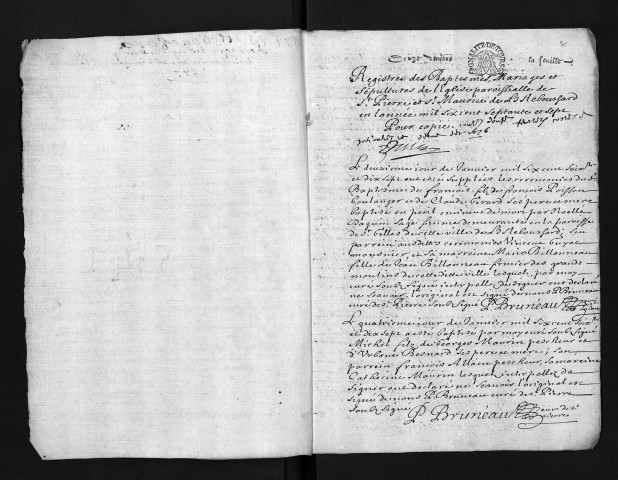 Onze deniers la feuille
Registres des Baptesmes, Mariages et
Sepultures de l'Eglise paroissialle de
St. Pierre et St. Maurice de L'Islebouchard
en l'année mil six cent septante et sept
Pour copie
Le deuxiesme jour de Janvier mil six cent soixte.
et dix sept ont esté supplées les ceremonies du
Baptesme de françois filz de françois Poisson
boulanger et de Claude Girard ses pere et mere
baptisé en peril eminent de mort par Noelle
Baquin sage femme demeurante en la paroisse
de St. Gilles de cette ville de L'Islebouchard; son
parrein ausdittes ceremonies Vincent Guyot
meusnier, et sa marreine Marie Billonneau
fille de Jean Billonneau fermier des grands
moulins de cette ditte ville lesquels, par moy
curé soubz signé interpellés de signer ont declaré
ne sçavoir l'original est signé de nous P. Bruneau
curé de St. Pierre soubz signé P. Bruneau
Le quatriesme jour de Janvier mil six cent soixte.
et dix sept a esté baptisé par moy curé soubz signé
Michel filz de Georges Maurin pescheur et
d'Urbane Besnard ses pere et mere; son
parrein françois Allain pescheur, sa marreine
Catherine Maurin lesquels interpellés de
signer ont declaré ne sçavoir l'original est
signé de nous P. Bruneau curé de St. Pierre
soubz signé P. Bruneau curé de St.
Pierre